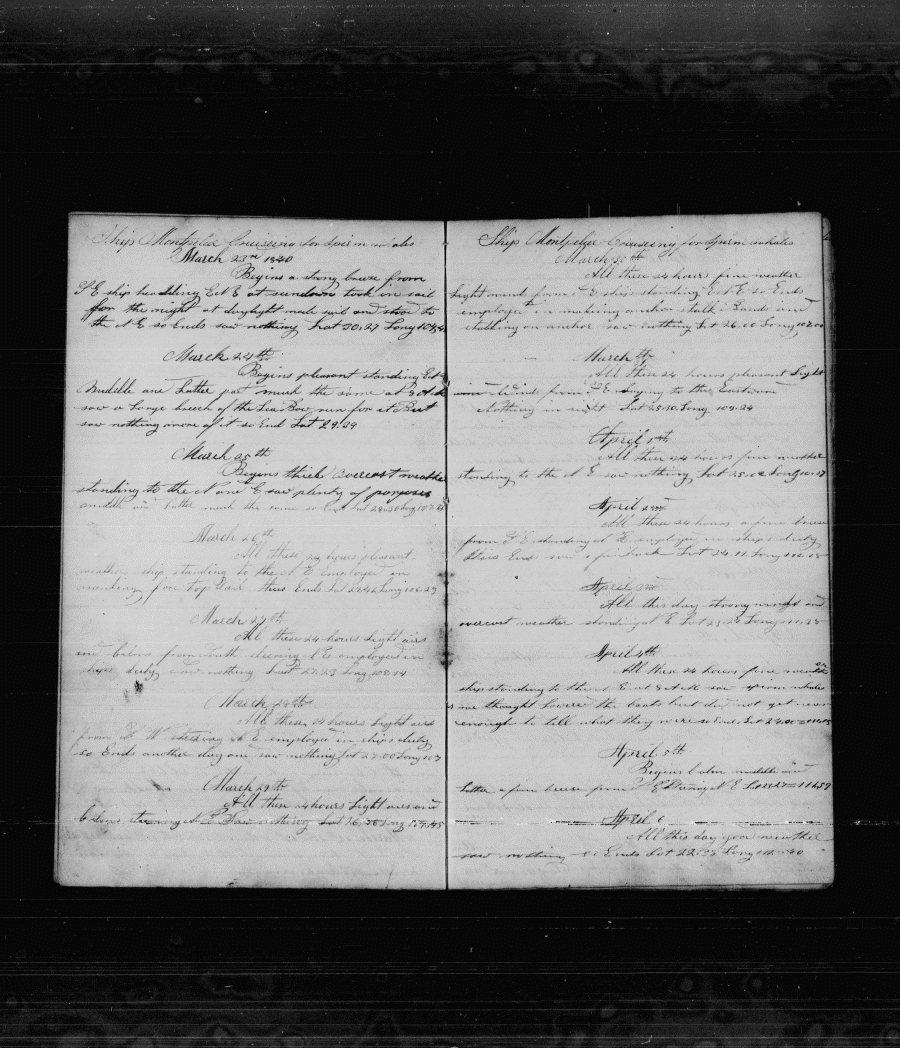 Ship Montpelier Cruiseing for Spirm whales
March 23rd 1840
Begins a strong breese from
S E ship heading E at sundown took in sail
for the night at daylight made sail and stood to
the N E so Ends saw nothing Lat 30,27 Long
March 24th
Begins pleasant standing
Middle and Latter part much the same at
saw a large breech of the Lea Bow run for it But
saw nothing more of it so End Lat 29.29
March 25th
Begins thick overcast weather
standing to the N and E saw plenty of porpoises
middle and latter much the same so Ends Lat Long
March 26th
All these 24 hours pleasant
weather ship standing to the N E Employed in
mending fore top sail thus Ends Lat Long 106.29
March 27th
All these 24 hours Light airs
and calms from South steering N E employed in
ships duty saw nothing Lat 27.23 Long
March 28th
All these 24 hours Light airs
from S W steering N E employed in ships duty
so Ends another day and saw nothing Lat 27.00 Long 107
March 29th
All these 24 hours Light airs and
Calms steering N E Saw nothing Lat Long
Ship Montpelier Crouseing for Spirm whales
March 30th
All these 24 hours fine weather
Light wind from E ship standing E N E so Ends
employed in making anchor stalk Bands and
stalking an anchor saw nothing Lat 26.00 Long
March
All these 24 hours pleasant Light
winds from E Laying to the Eastward
Nothing in sight Lat 25.50 Long 109.24
April 1st
All these 24 hours fine weather
standing to the N E saw nothing Lat Long
April 2nd
All these 24 hours a fine breese
from S E standing at E employed in ships duty
thus Ends saw a Lat 24.11 Long
April 3rd
All this day strong winds and
overcast weather standing at E Lat Long
April 4th
All these 24 hours fine weather
ship standing to the N E at 8 saw spirm whales
as we thought Lowered the boats but did not get near
enough to tell what they were so Ends Lat 24.00
April 5th
Begins calm middle and
Latter a fine breese from S E N E
April 6
All this day good weather
saw nothing so Ends Lat Long